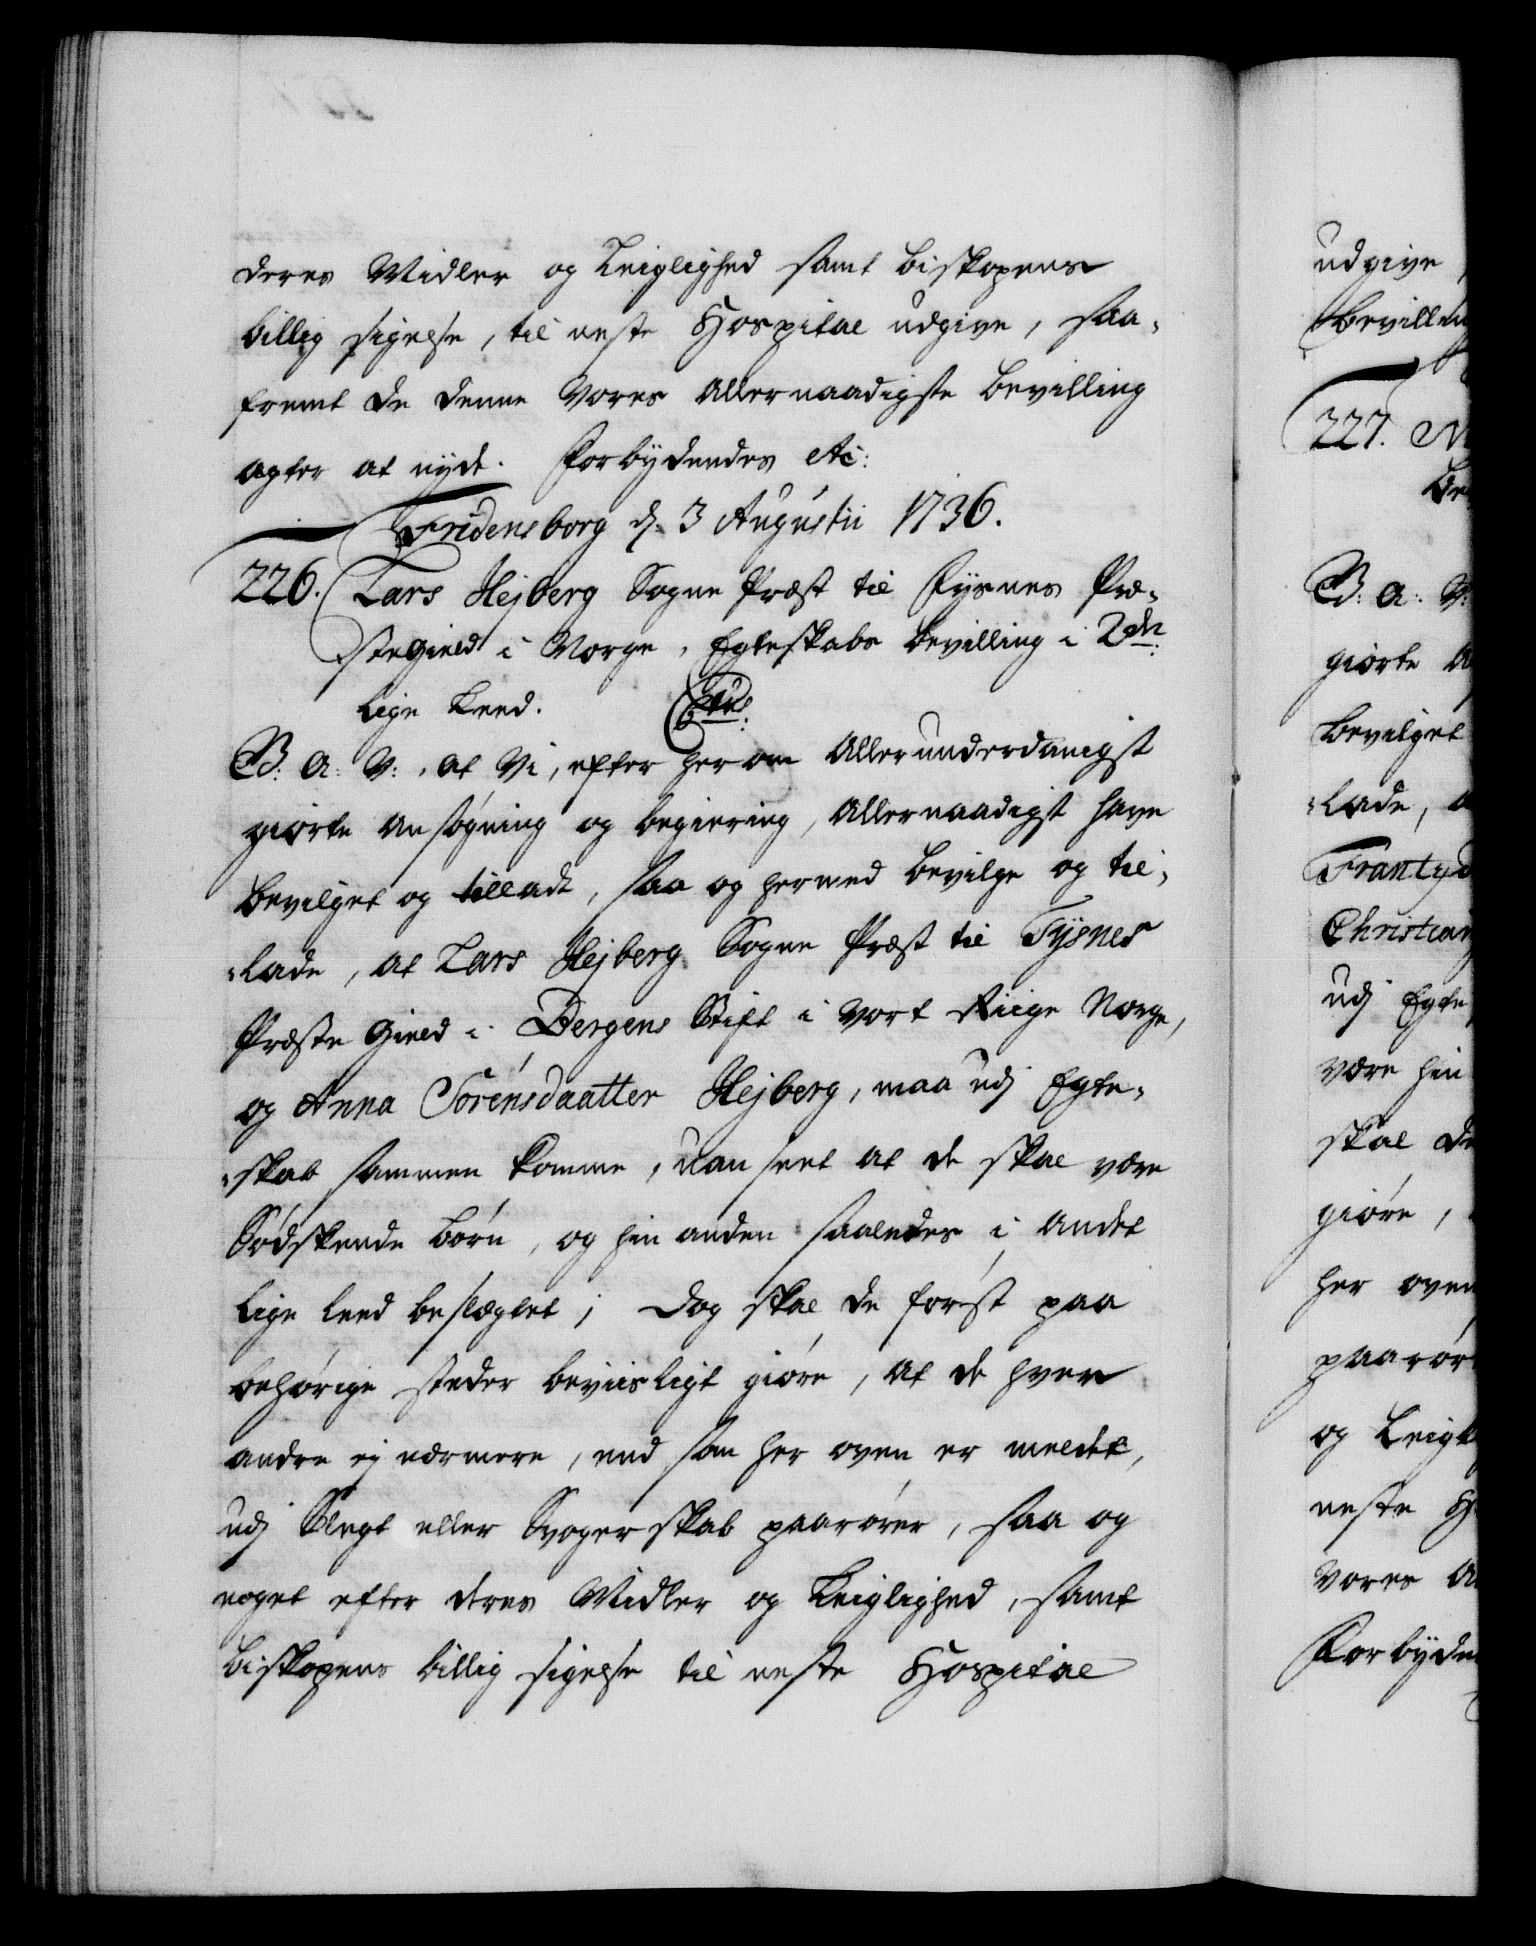 deres Midler og Leiglighed samt biskopens
billig sigelse, til neste Hospital udgive, saa„
fremt de denne Vores Allernaadigste bevilling
agter at nyde. Forbydendes etc:
Fridensborg d. 3 Augustii 1736.
226. Lars Hejberg Sogne Præst til Tysnes Præ„
stegield i Norge, Egteskabs bevilling i 2den
lige Leed.
B: A: V:, at Vi, efter her om Allerunderdanigst
giorte ansøgning og begiering, Allernaadigst have
bevilget og tilladt, saa og hermed bevilge og til„
„lade, at Lars Hejberg Sogne Præst til Tysnes
Præste Gield i Bergens Stift i vort Riige Norge,
og Anna Sørensdaatter Hejberg, maa udj Egte„
„skab sammen komme, uanseet at de skal være
Sødskende børn, og hin anden saaledes i andet
lige leed beslægtet; dog skal de først paa
behørige steder beviisligt giøre, at de hver
andre ej nærmere, end som her oven er meldt,
udj Slegt eller Svogerskab paarører, saa og
noget efter deres Midler og Leiglighed, samt
biskopens billig sigelse til neste Hospital
udgive
bevillin
227. M
B: A: V:
giorte A
bevilget
„lade, a
Frantz
Christian
udj Egte
være hin
skal de
giøre,
her oven
paarør
og Leigl
neste H
vores A
Forbyde